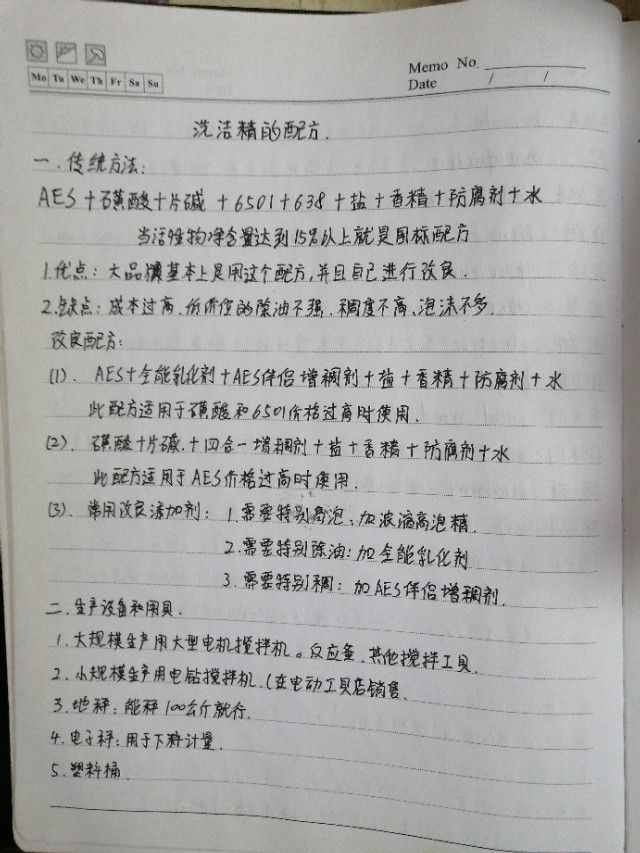 Memo No.
Mo Tu We Th Fr Sa Su
Date / /
洗洁精的配方.
一.传统方法:
AES+磺酸+片碱+6501+638+盐+香精+防腐剂+水
当活性物净含量达到15%以上就是国标配方
1.优点:大品牌基本上是用这个配方,并且自己进行改良.
2.缺点:成本过高.价廉值的除油不强.稠度不高、泡沫不多
改良配方:
(1).AES+全能乳化剂+AES伴侣增稠剂+盐+香精+防腐剂+水
此配方适用于磺酸和6501价格过高时使用.
(2).磺酸+片碱.+四合一增稠剂+盐+香精+防腐剂+水
此配方适用于AES价格过高时使用.
(3).常用改良添加剂:1.需要特别高泡:加浓缩高泡精.
2.需要特别除油:加全能乳化剂
3.需要特别稠:加AES伴侣增稠剂.
二.生产设备和用具.
1.大规模生产用大型电机搅拌机。反应釜.其他搅拌工具.
2.小规模生产用电钻搅拌机.(在电动工具店销售.
3.地秤:能秤100公斤就行.
4.电子秤:用于下料计量.
5.塑料桶.